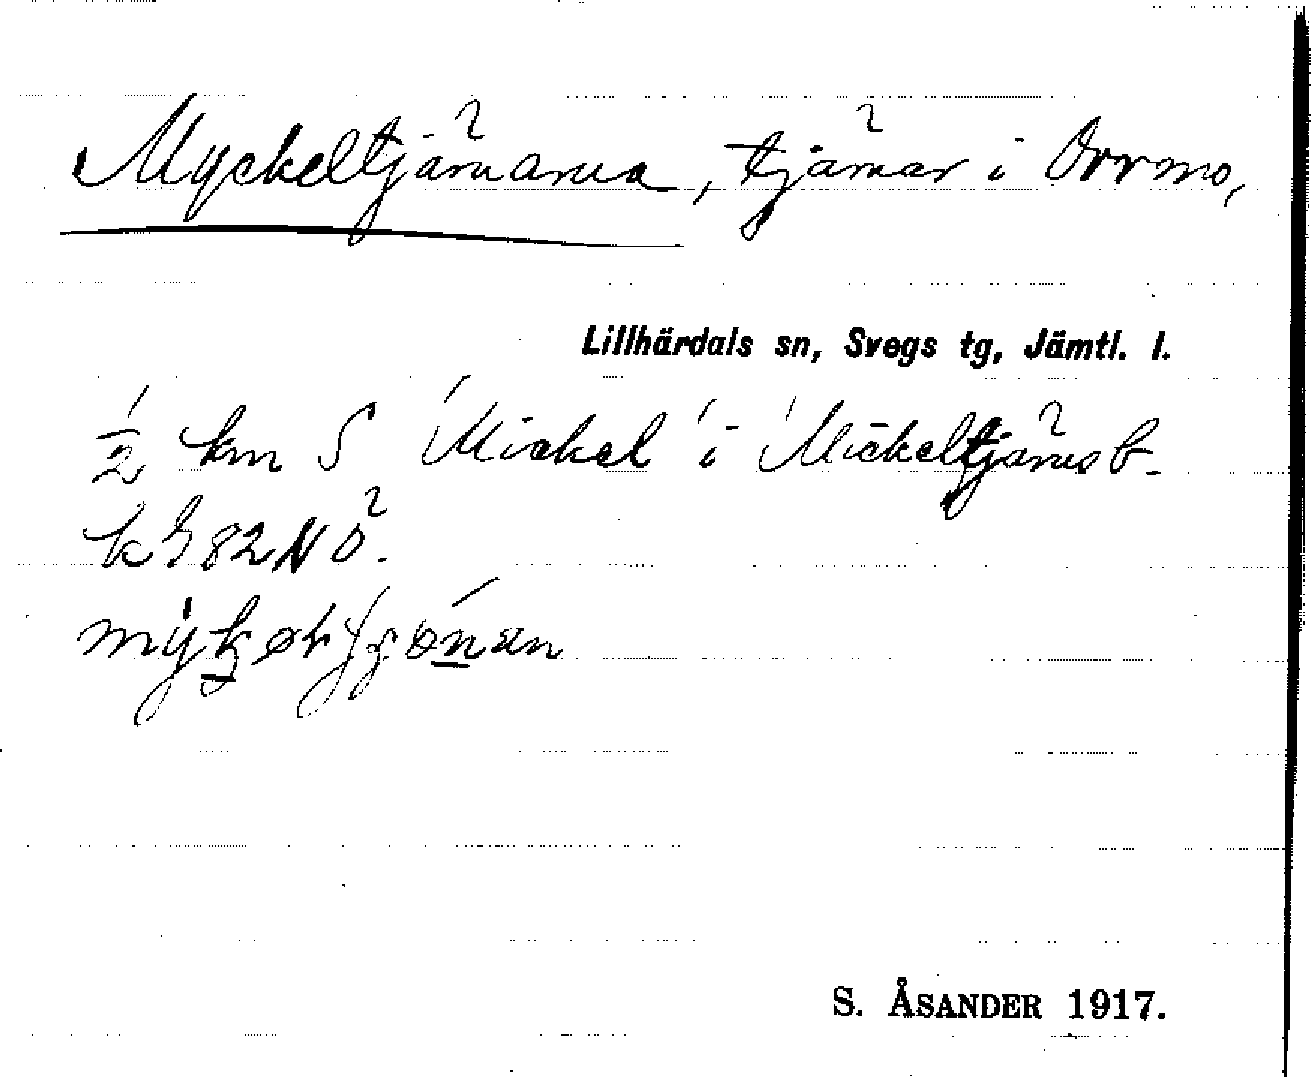 Myckeltjärnarna, tjärnar i Orrmo,
Lillhärdals sn, Svegs tg, Jämtl. l.
1/2 km S "Mickel" i "Mickeltjärnsb-
82 NÖ.
S. ÅSANDER 1917.